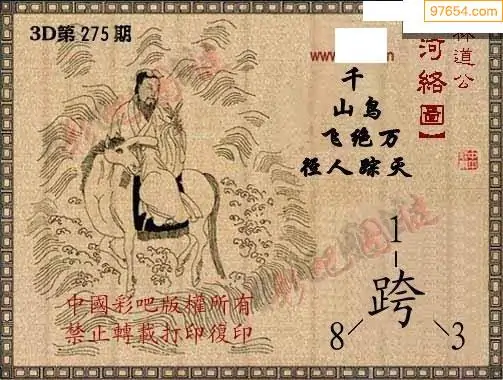 97654.com
3D第275期
www
道公
河絡圖】
千
山鸟
飞绝万
径人踪灭
中國彩吧版權所有
禁止轉載打印復印
1
跨
8 3